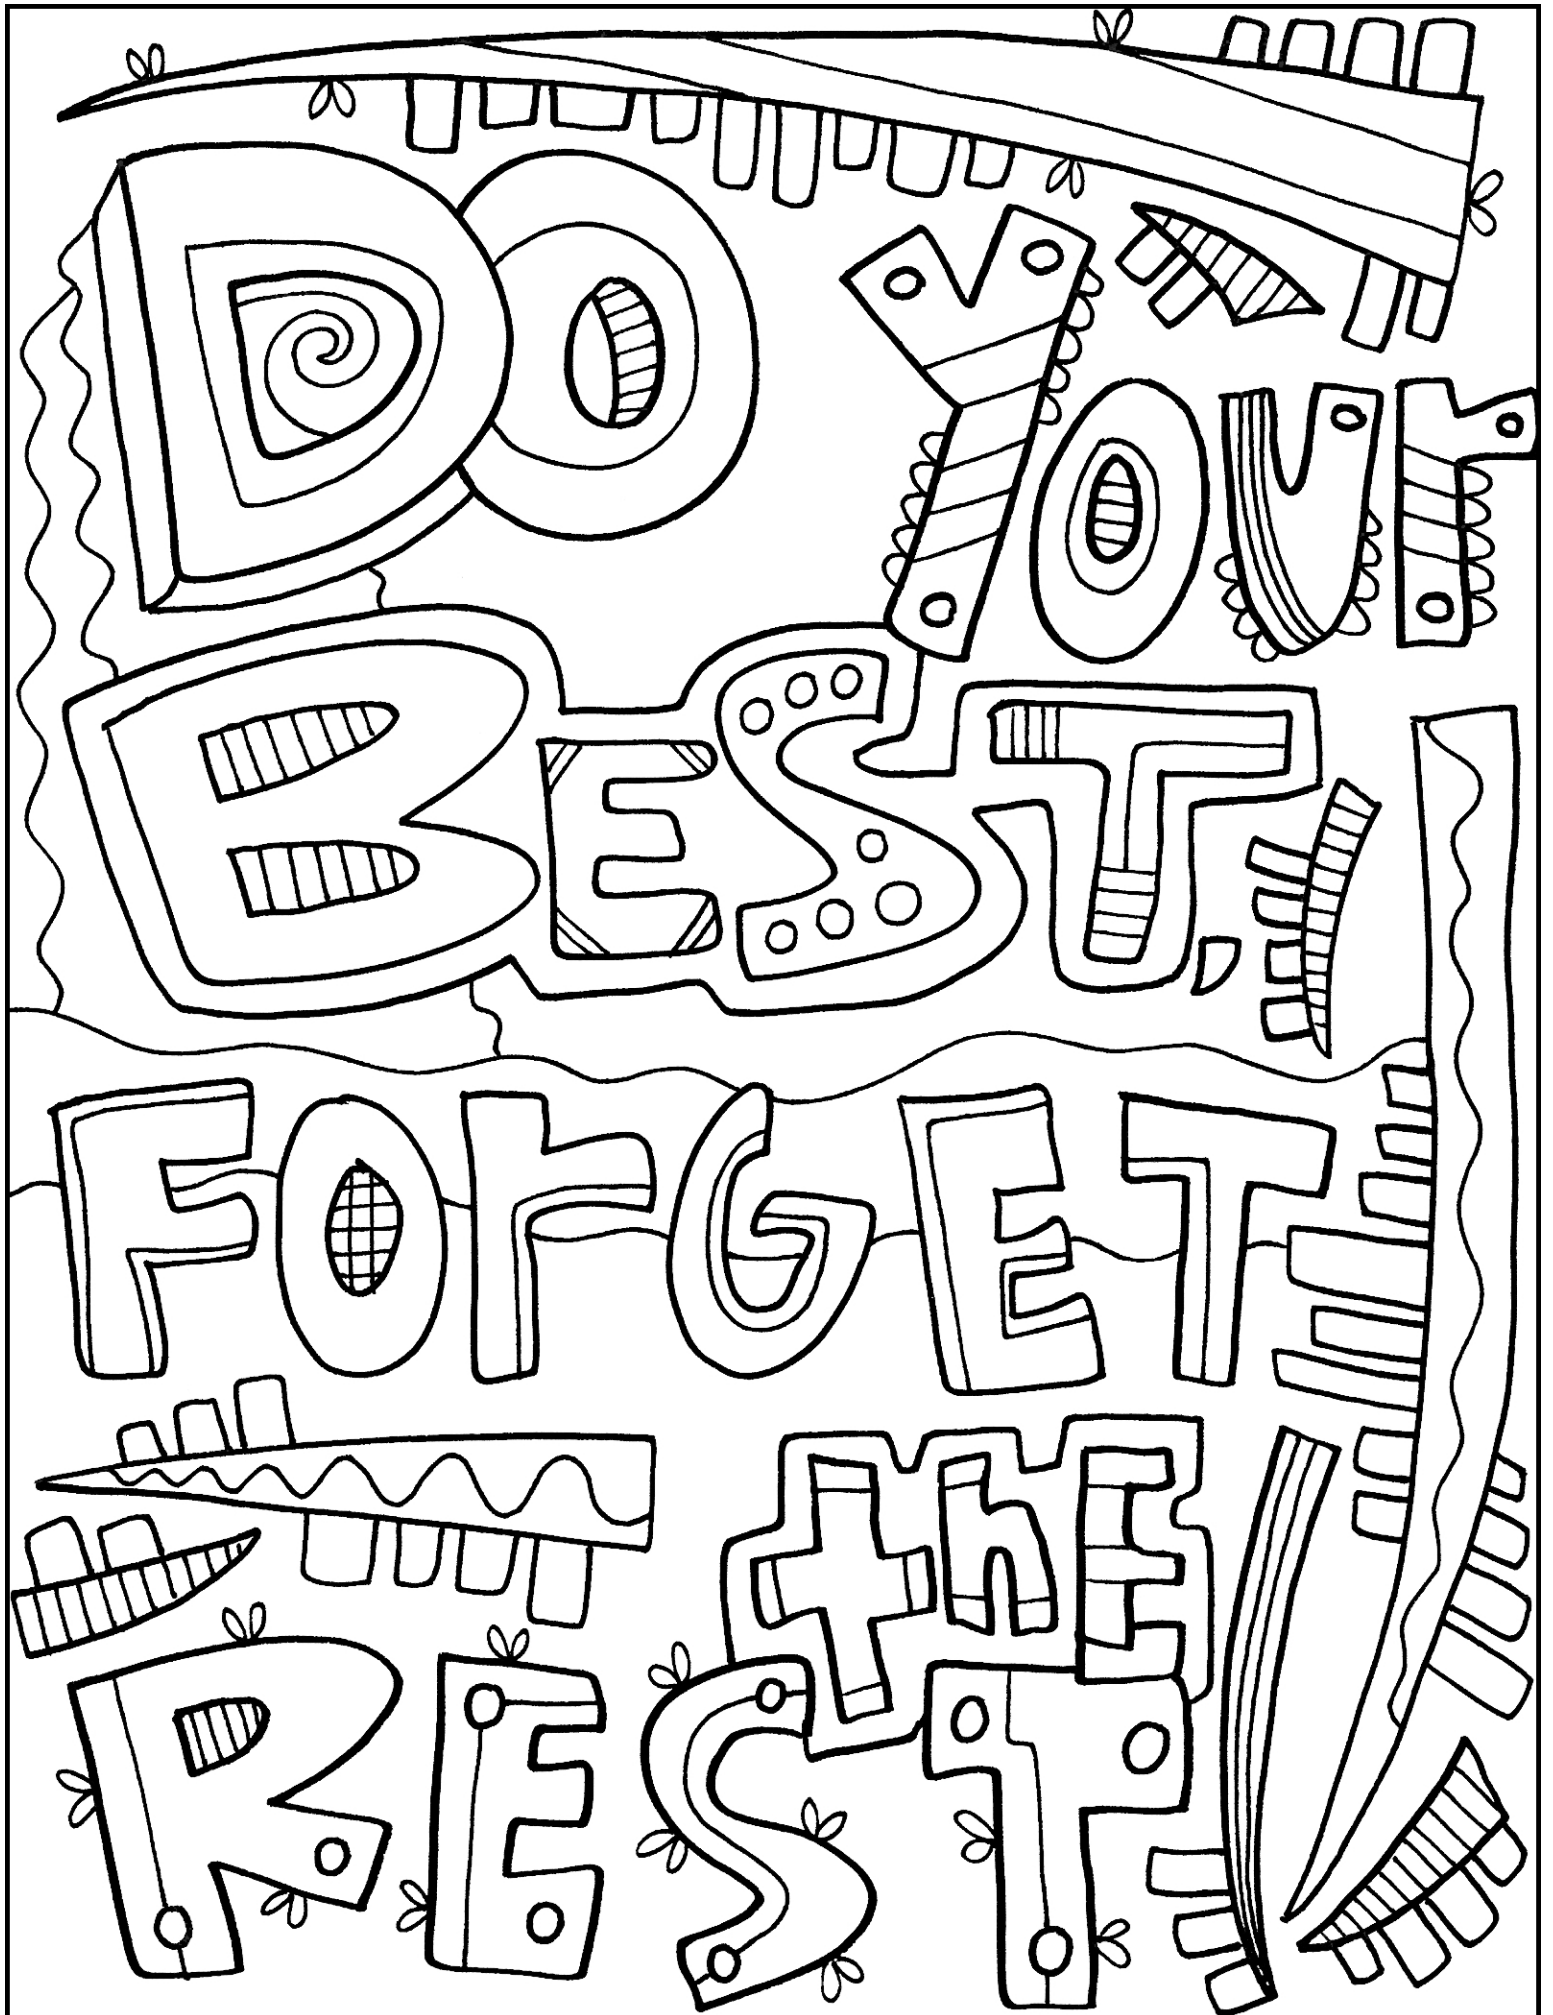 Do Your
Best,
Forget
the
Rest